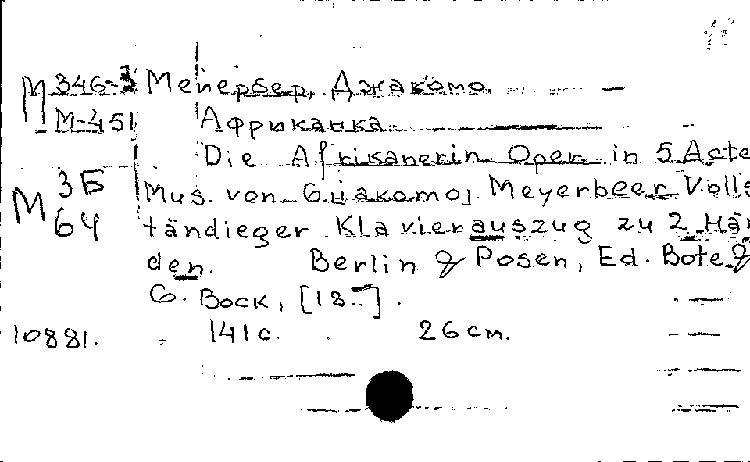 М 346-3 Мейербер, Джакомо
М-451 Африканка
Die Afrikanerin Oper in 5 Acte
М 3Б Mus. von Giiakomoj Meyerbeer Volls
64 tändieger Klavierauszug zu 2 Hän
den. Berlin & Posen, Ed. Bote &
G. Bock, [18-].
10881. 141 с. 26 см.